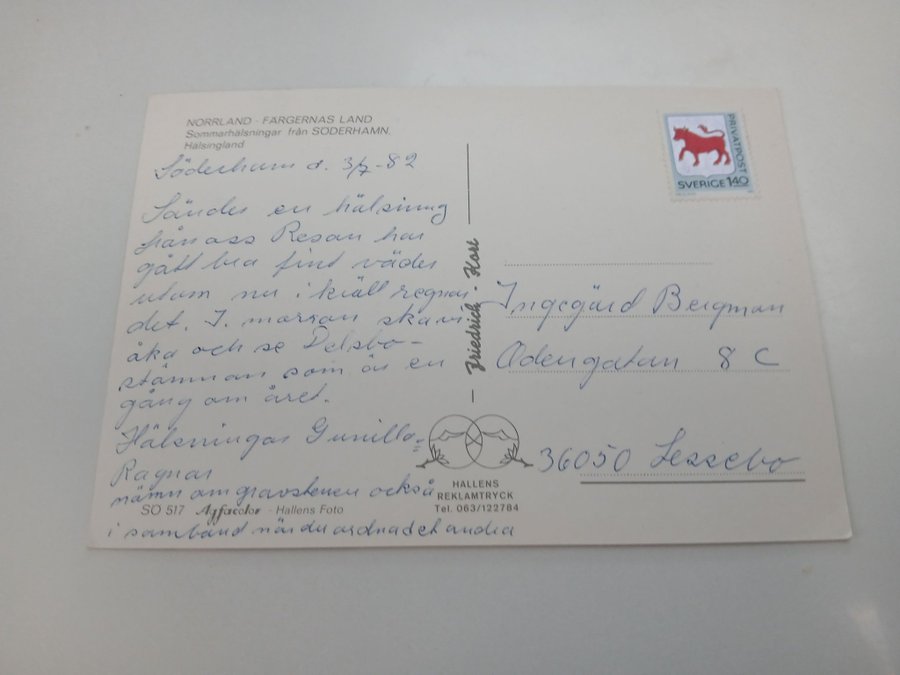 NORRLAND - FÄRGERNAS LAND
Sommarhälsningar från SÖDERHAMN,
Hälsingland
Söderhamn d. 3/7-82
Sänder en hälsning
från oss Resan har
gått bra fint väder
utom nu i kväll regnar
det. I morron ska vi
åka och se Delsbo-
stämman som är en
gång om året.
Hälsningar Gunilla-
Ragnar
nämn om gravstenen också
i samband när du ordnad et andra
SO 517 Agfacolor - Hallens Foto
Friedrich - Kort
HALLENS
REKLAMTRYCK
Tel. 063/122784
PRIVATPOST
SVERIGE 140
Ingegärd Bergman
Odengatan 8 C
36050 Lessebo